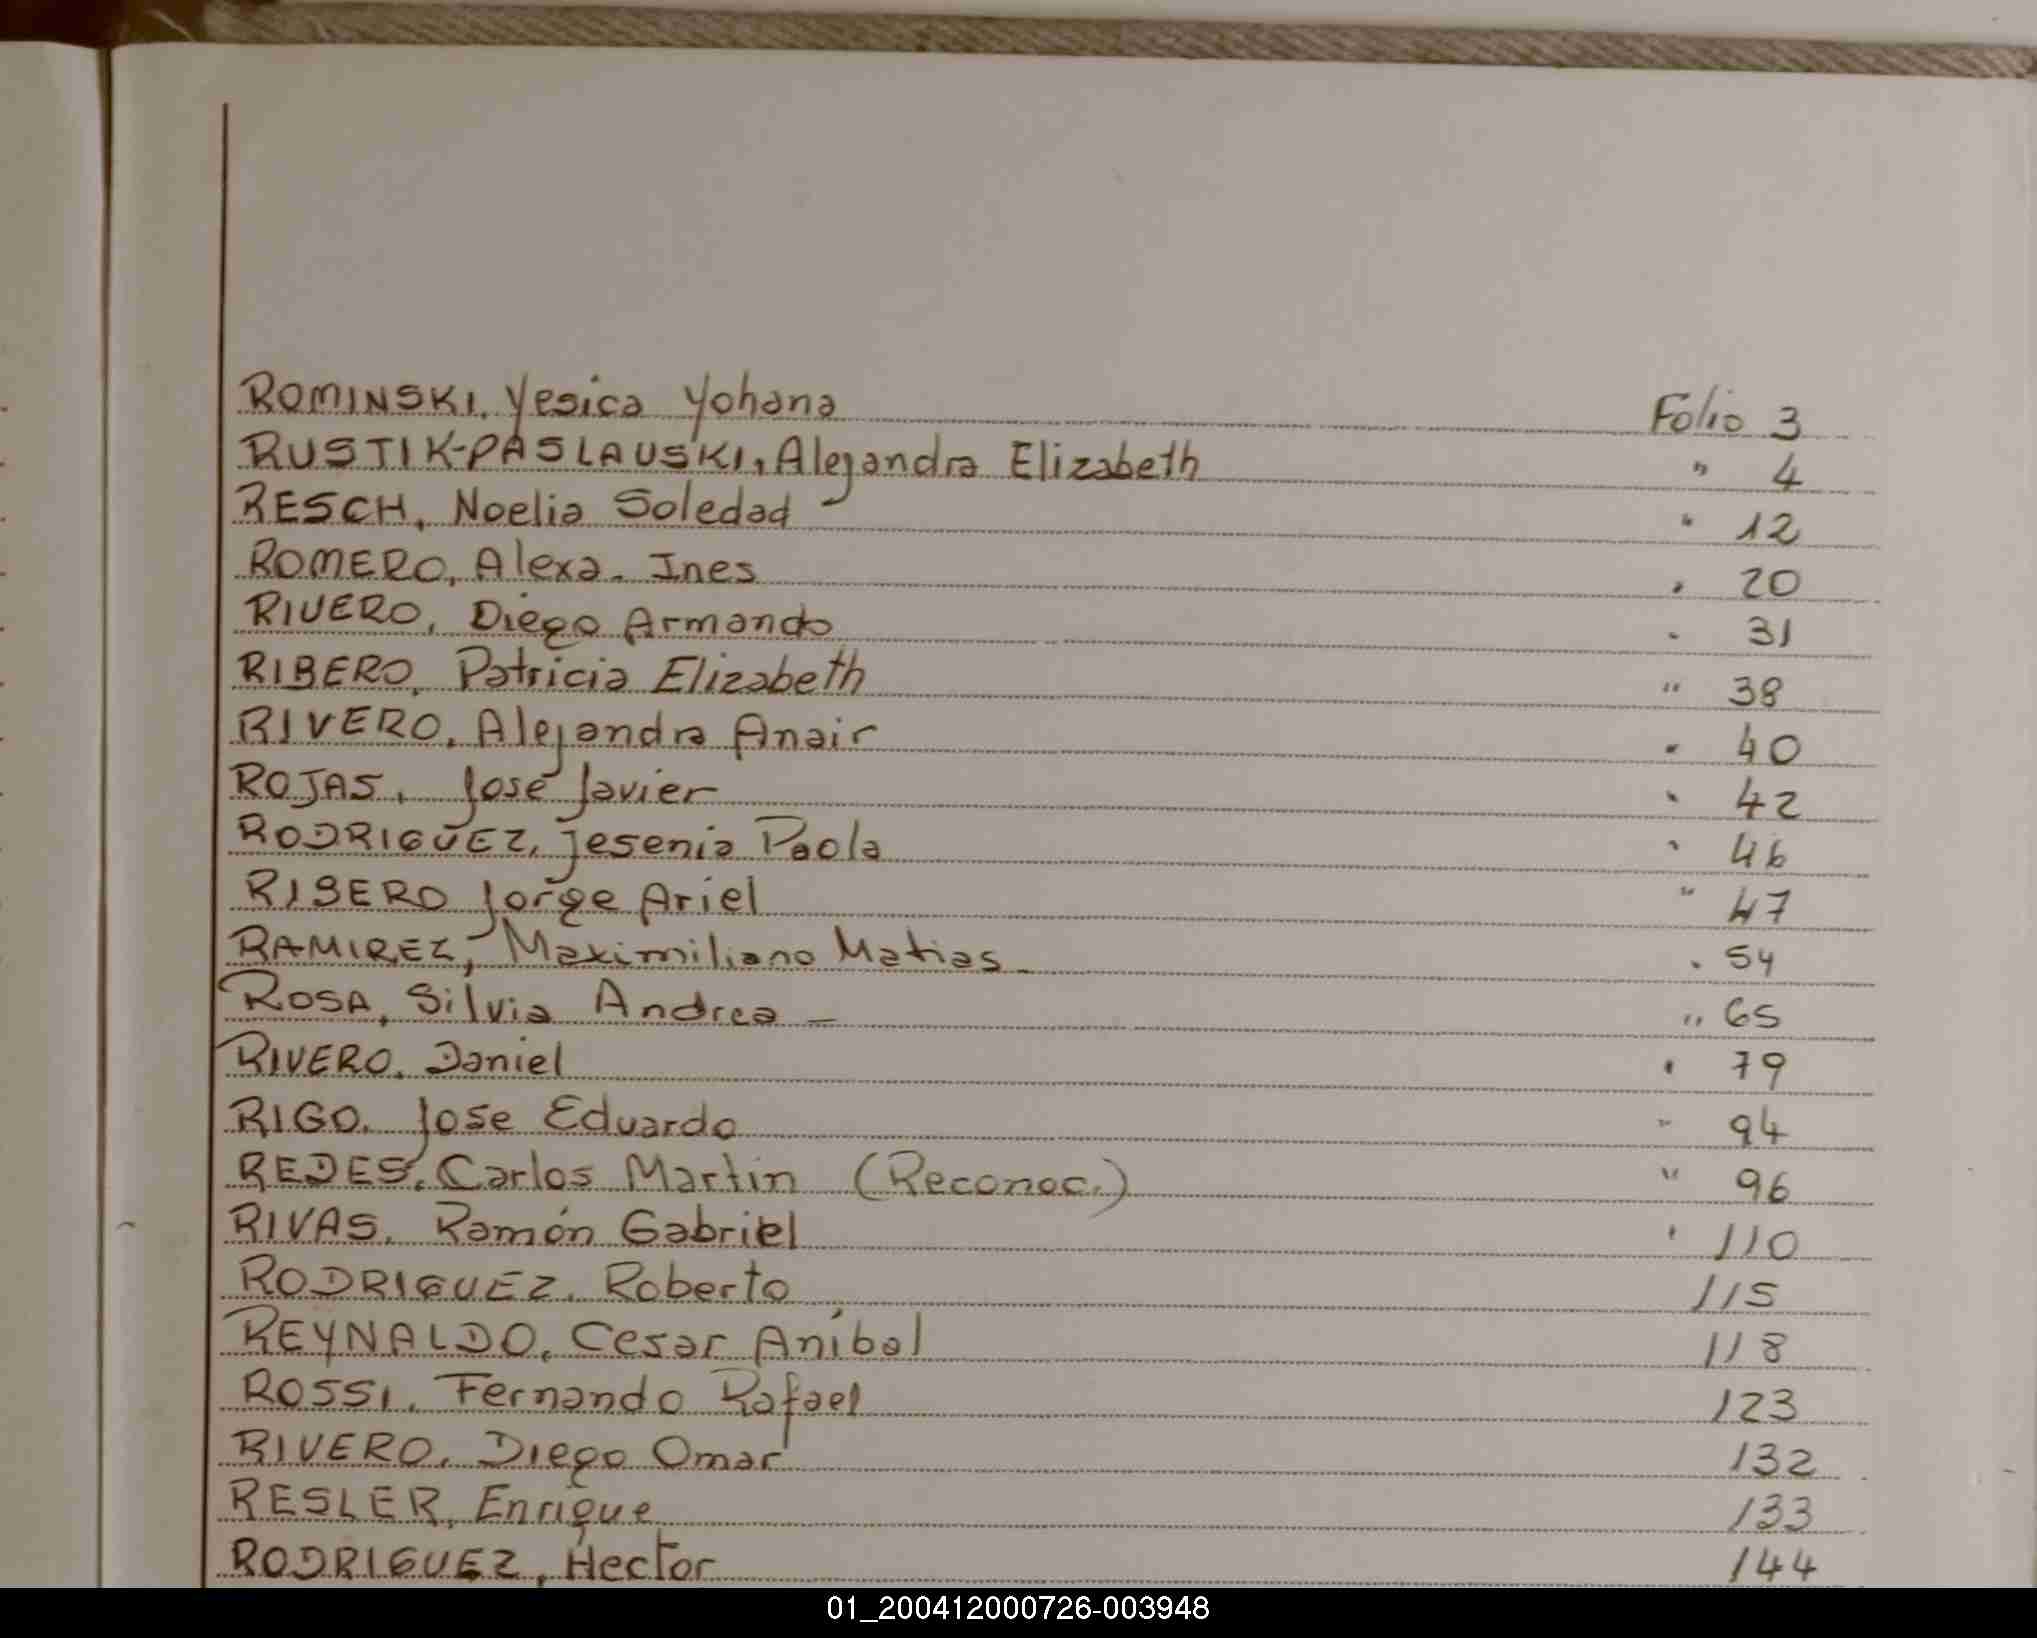 ROMINSKI, Yesica Yohana Folio 3
RUSTIK-PASLAUSKI, Alejandra Elizabeth " 4
RESCH, Noelia Soledad " 12
ROMERO, Alexa. Ines " 20
RIVERO, Diego Armando " 31
RIBERO, Patricia Elizabeth " 38
RIVERO, Alejandra Anair " 40
ROJAS, Jose Javier " 42
RODRIGUEZ, Jesenia Paola " 46
RIBERO Jorge Ariel " 47
RAMIREZ, Maximiliano Matias " 54
ROSA, Silvia Andrea - " 65
RIVERO, Daniel " 79
RIGO, Jose Eduardo " 94
REDES, Carlos Martin (Reconoc.) " 96
RIVAS, Ramón Gabriel " 110
RODRIGUEZ, Roberto 115
REYNALDO, Cesar Anibal 118
ROSSI, Fernando Rafael 123
RIVERO, Diego Omar 132
RESLER, Enrique 133
RODRIGUEZ, Hector 144
01_200412000726-003948